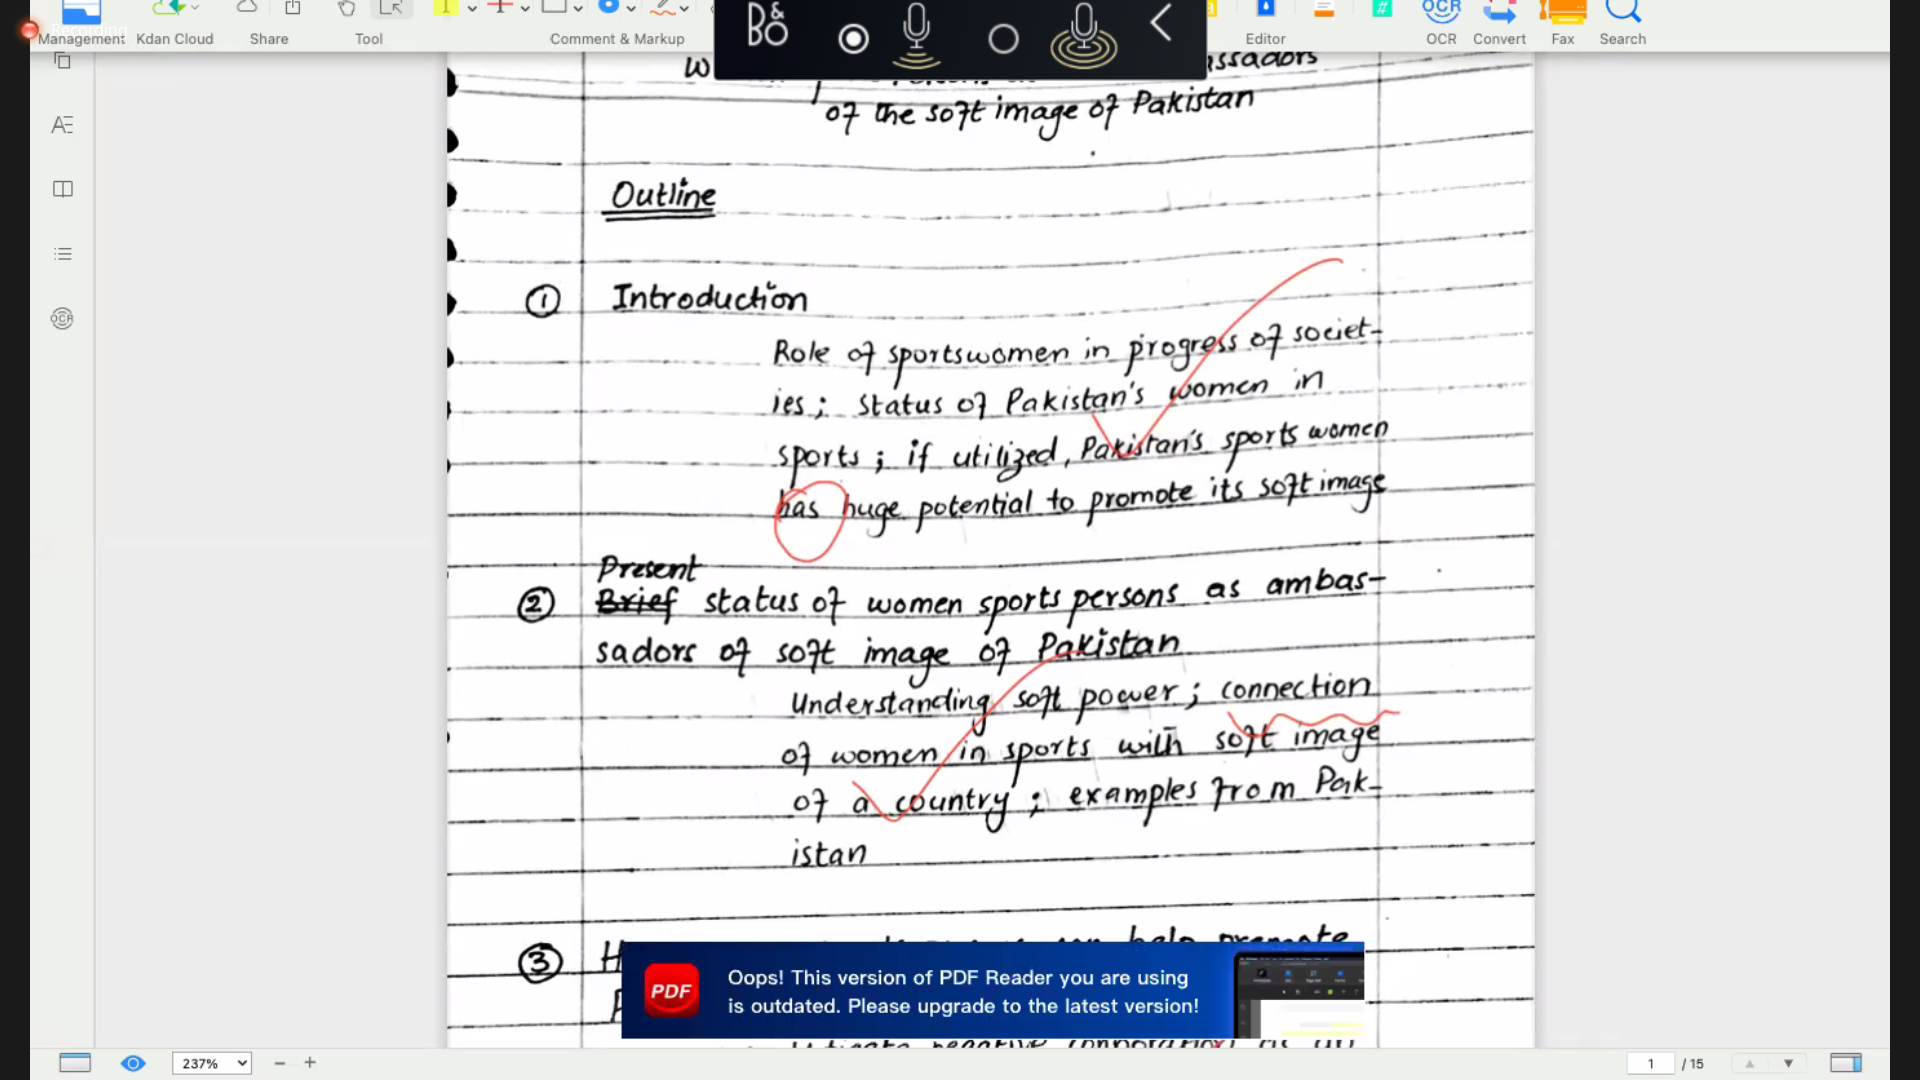 Recording
Management Kdan Cloud Share Tool Comment & Markup Editor OCR Convert Fax Search
B&O
of the soft image of Pakistan
Outline
① Introduction
Role of sportswomen in progress of societ-
ies; status of Pakistan's women in
sports; if utilized, Pakistan's sports women
has huge potential to promote its soft image
Present
② Brief status of women sports persons as ambas-
sadors of soft image of Pakistan
Understanding soft power; connection
of women in sports with soft image
of a country; examples from Pak-
istan
③
PDF
Oops! This version of PDF Reader you are using
is outdated. Please upgrade to the latest version!
237%
1 / 15